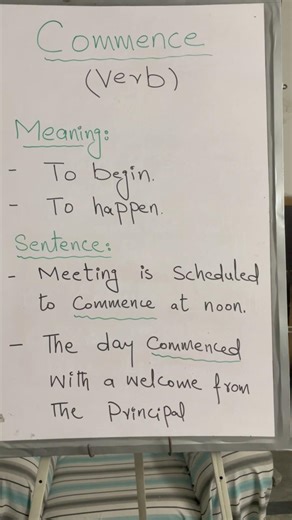 Commence
(Verb)
Meaning:
- To begin.
- To happen.
Sentence:
- Meeting is Scheduled
to Commence at noon.
- The day Commenced
with a welcome from
The Principal